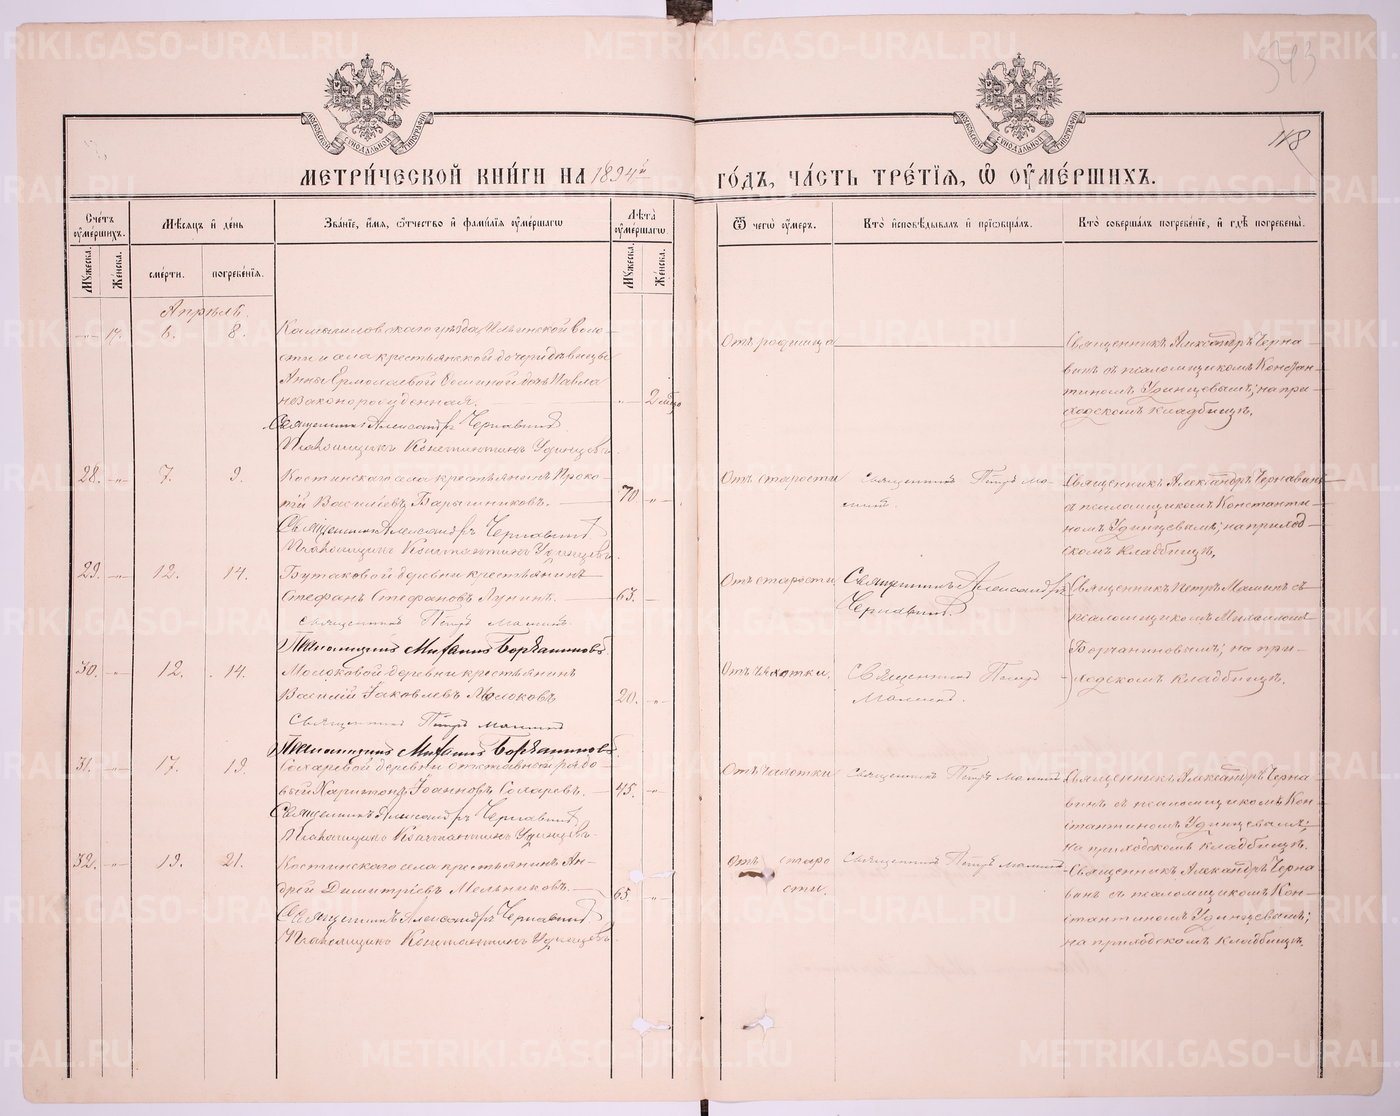 543
118
МОСКОВСКОЙ СѴНОДАЛЬНОЙ ТИПОГРАФІИ
МОСКОВСКОЙ СѴНОДАЛЬНОЙ ТИПОГРАФІИ
МЕТРИ́ЧЕСКОЙ КНИ́ГИ НА 1894й
ГО́ДЪ, ЧА́СТЬ ТРЕ́ТІѦ, Ѡ ОУМЕ́РШИХЪ.
Сче́тъ оуме́ршихъ.
Мꙋжеска. Же́нска.
Мѣ́сѧцъ и҆ де́нь
сме́рти. погребе́нїѧ.
Зва́нїе, и҆́мѧ, ѻ҆́тчество и҆ фами́лїѧ оуме́ршагѡ
Лѣ́та оуме́ршагѡ.
Мꙋжеска. Же́нска.
Ѿ чегѡ̀ оу́меръ.
Кто̀ и҆сповѣ́дывалъ и҆ прїѡбща́лъ.
Кто̀ соверша́лъ погребе́нїе, и҆ гдѣ̀ погребены̀.
Апрѣль.
17. 6. 8. Камышловскаго уѣзда, Ильинской воло-
сти и села крестьянской дочери дѣвицы
Анны Ермолаевой дочь Павла
незаконорожденная. 2 мѣся
Священникъ Александръ Чернавинъ
Псаломщикъ Константинъ Удинцевъ.
Отъ родимца
Священникъ Александръ Черна-
винъ съ псаломщикомъ Констан-
тиномъ Удинцевымъ; на при-
ходскомъ кладбищѣ.
28. 7. 9. Костинскаго села крестьянинъ Проко-
пій Васильевъ Барышниковъ. 70
Священникъ Александръ Чернавинъ
Псаломщикъ Константинъ Удинцевъ.
Отъ старости
Священникъ Петръ Ма-
минъ.
Священникъ Александръ Чернавинъ
съ псаломщикомъ Константи-
номъ Удинцевымъ; на приход-
скомъ кладбищѣ.
29. 12. 14. Бутаковой деревни крестьянинъ
Стефанъ Стефановъ Лунинъ. 63.
Священникъ Петръ Маминъ.
Псаломщикъ Михаилъ Борчаниновъ
Отъ старости
Священникъ Александръ
Чернавинъ.
Священникъ Петръ Маминъ съ
псаломщикомъ Михаиломъ
Борчаниновымъ; на при-
ходскомъ кладбищѣ.
30. 12. 14. Молоковой деревни крестьянинъ
Василій Іаковлевъ Молоковъ 20.
Священникъ Петръ Маминъ
Псаломщикъ Михаилъ Борчаниновъ
Отъ чахотки.
Священникъ Петръ
Маминъ.
31. 17. 19. Сохаревой деревни отставной рядо-
вый Харитонъ Іоанновъ Сохаревъ. 45.
Священникъ Александръ Чернавинъ
Псаломщикъ Константинъ Удинцевъ.
Отъ чахотки
Священникъ Петръ Маминъ
Священникъ Александръ Черна-
винъ съ псаломщикомъ Кон-
стантиномъ Удинцевымъ;
на приходскомъ кладбищѣ.
32. 19. 21. Костинскаго села крестьянинъ Ан-
дрей Димитріевъ Мельниковъ. 65.
Священникъ Александръ Чернавинъ
Псаломщикъ Константинъ Удинцевъ.
Отъ старо
сти.
Священникъ Петръ Маминъ
Священникъ Александръ Черна
винъ съ псаломщикомъ Кон-
стантиномъ Удинцевымъ;
на приходскомъ кладбищѣ.
METRIKI.GASO-URAL.RU